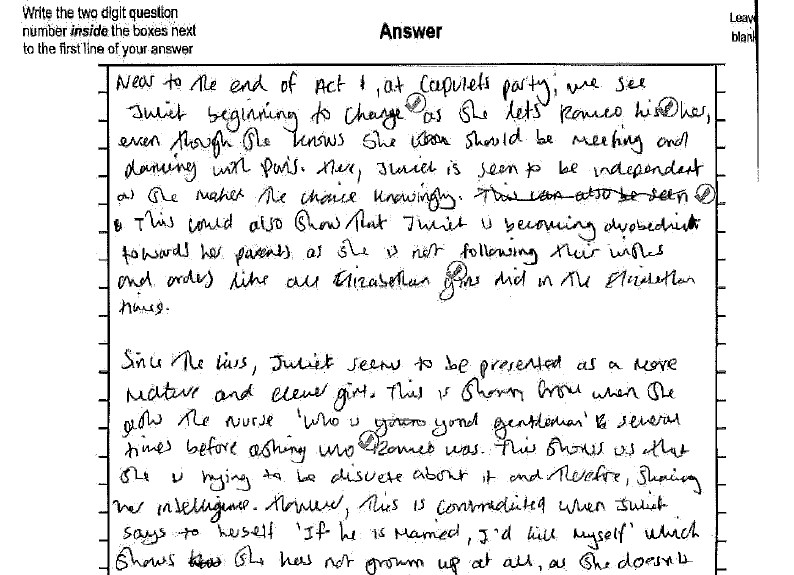 Write the two digit question
number inside the boxes next
to the first line of your answer
Answer
Leave
blank
Near to the end of Act 1, at Capulets party, we see
Juliet beginning to change as she lets Romeo kiss her,
even though she knows she should be meeting and
dancing with Paris. Here, Juliet is seen to be independent
as she makes the choice knowingly. This can also be seen
This could also show that Juliet is becoming disobedient
towards her parents as she is not following their wishes
and orders like all Elizabethan girls did in the Elizabethan
times.
Since the kiss, Juliet seems to be presented as a more
mature and clever girl. This is shown when she
asks the nurse 'Who is yond gentleman' several
times before asking who Romeo was. This shows us that
she is trying to be discrete about it and therefore, sharing
her intelligence. However, this is contradicted when Juliet
says to herself 'If he is married, I'd kill myself' which
shows she has not grown up at all, as she doesn't